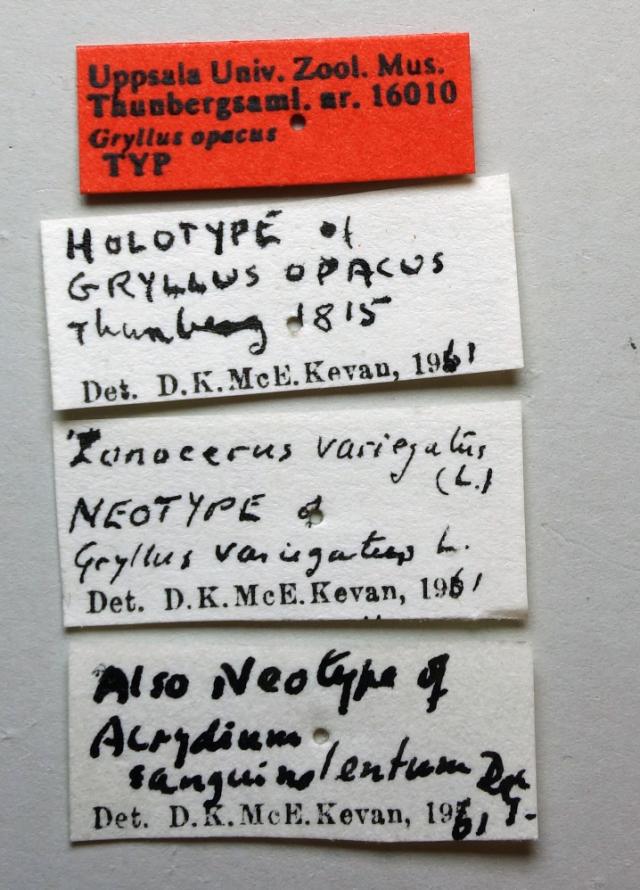 Uppsala Univ. Zool. Mus.
Thunbergsaml. nr. 16010
Gryllus opacus
TYP
HOLOTYPE of
GRYLLUS OPACUS
Thunberg 1815
Det. D.K.McE.Kevan, 1961
Zonocerus variegatus
(L.)
NEOTYPE of
Gryllus variegatus L.
Det. D.K.McE.Kevan, 1961
Also Neotype of
Acrydium
sanguinolentum
Det. D.K.McE.Kevan, 1961